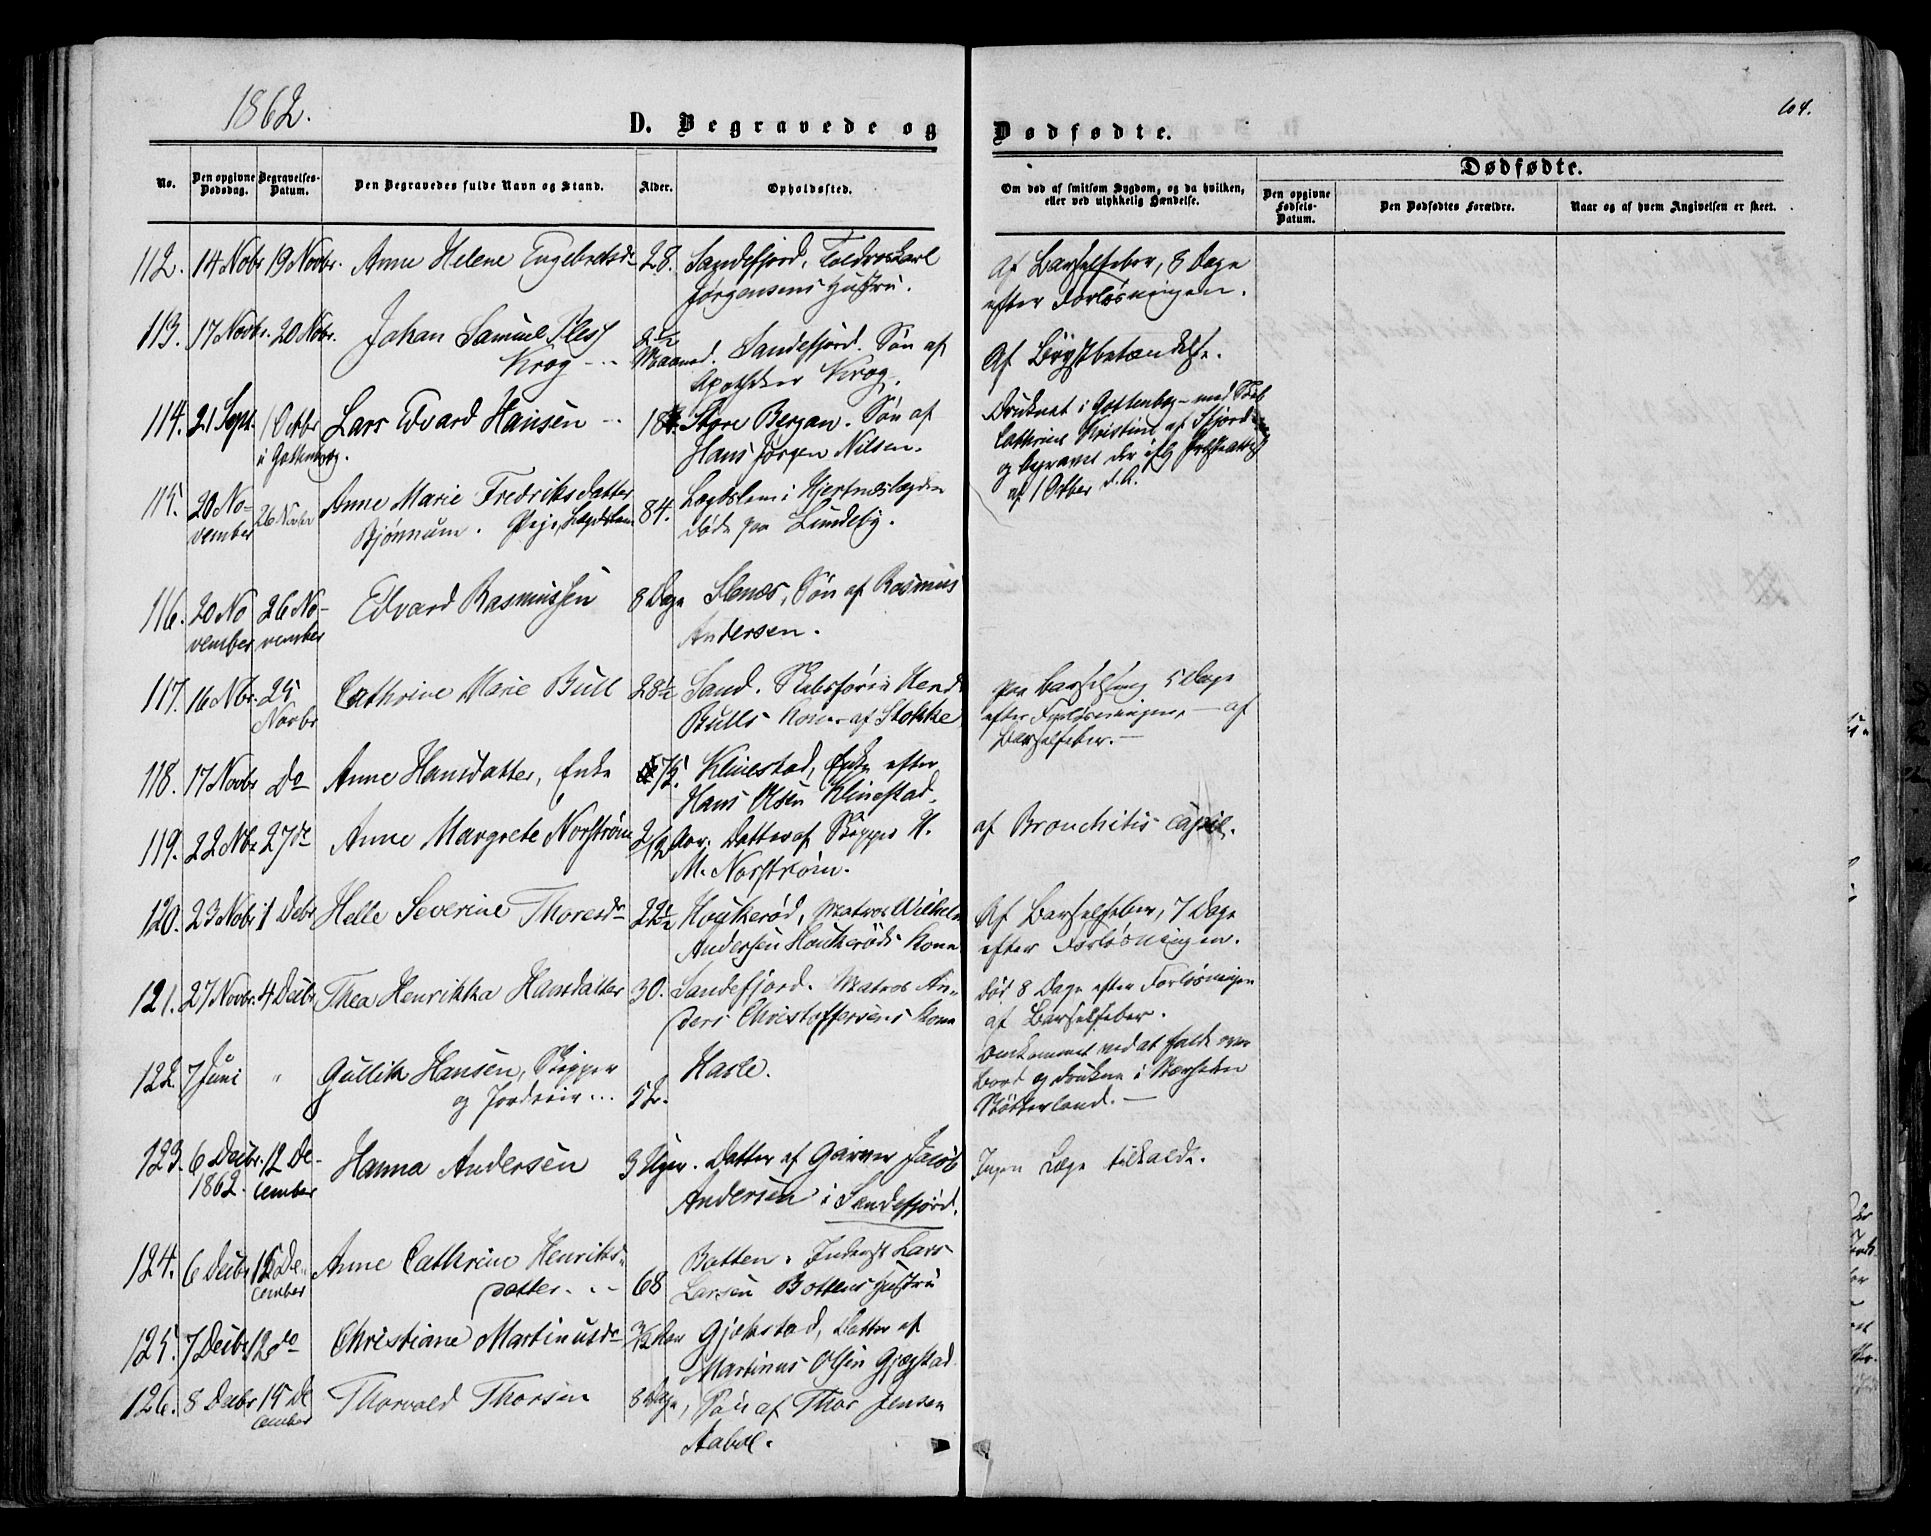 1862.
604.
D. Begravede og Dødfødte.
Dødfødte.
No.
Den opgivne Dødsdag.
Begravelses-Datum.
Den Begravedes fulde Navn og Stand.
Alder.
Opholdssted.
Om død af smitsom Sygdom, og da hvilken, eller ved ulykkelig Hændelse.
Den opgivne Fødsels-Datum.
Den Dødfødtes Forældre.
Naar og af hvem Angivelsen er skeet.
112. 14 Nobr 19 Novbr. Anne Helene Engebretsdr 28. Sandefjord, Carl
Jørgensens Hustru.
Af Barselfeber, 8 Dage
efter Forløsningen.
113. 17 Novbr. 20 Nobr. Johan Samuel Krog 2½ Maaned. Sandefjord. Søn af
Apotheker Krog.
Af Brystbetændelse.
114. 21 Sept. 1 Octbr i Gottenborg. Lars Edvard Hansen 18 Store Bergan. Søn af
Hans Jørgen Nilsen.
Druknet i Gottenborg - med Skib
Cathrine Kristine af
og begravet der Presteattest
af 1 Octber d. A.
115. 20 November 26 Novbr Anne Marie Fredriksdatter
Bjønnum. Pige, Lægdslem 84. Lægdslem i Hjertnæslægden
døde paa Lundeby.
116. 20 November 26 November Edvard Rasmussen 8 Dage Stenæs, Søn af Rasmus
Andersen.
117. 16 Nbr. 25 Novbr Cathrine Marie Bull 28½ Sand. Skibsfører Hend.
Bulls Kone af Stokke
paa Barselseng 5 Dage
efter Forløsningen, - af
Barselfeber. -
118. 17 Novbr Do Anne Hansdatter, Enke 75. Klinestad, Enke efter
Hans Olsen Klinestad.
119. 22 Nbr 27de Anne Margrete Norstrøm 2½ Aar. Datter af Skipper H.
M. Norstrøm.
af Bronchitis capil.
120. 23 Nobr 1 Debr Helle Severine Thoresdr 22½ Houkerød, Matros Wilhelm
Andersen Houkerøds Kone
Af Barselfeber, 7 Dage
efter Forløsningen.
121. 27 Novbr. 4 Decbr Thea Henrikka Hansdatter 30. Sandefjord. Matros An-
ders Christoffersens Kone
død 8 Dage efter Forløsningen
af Barselfeber.
122. 7 Juni " Gullik Hansen, Skipper
og Jordeier... 52. Hasle.
Omkommet ved at falde over
Bord og drukne i Nærheden
123. 6 Decbr. 1862. 12 December Hanna Andersen 3 Uger. Datter af Garver Jacob
Andersen i Sandefjord.
Ingen Læge tilkaldt.
124. 6 Decbr 15 December Anne Cathrine Henriks-
datter. 68 Botten. Inderst Lars
Larsen Bottens Hustru
125. 7 Decbr 12 do Christiane Martinusdr ¾ Aar Gjekstad, Datter af
Martinus Olsen Gjegstad
126. 8 Decbr 15 December Thorvald Thorsen 8 Dage, Søn af Thor Jensen
Aabøl.